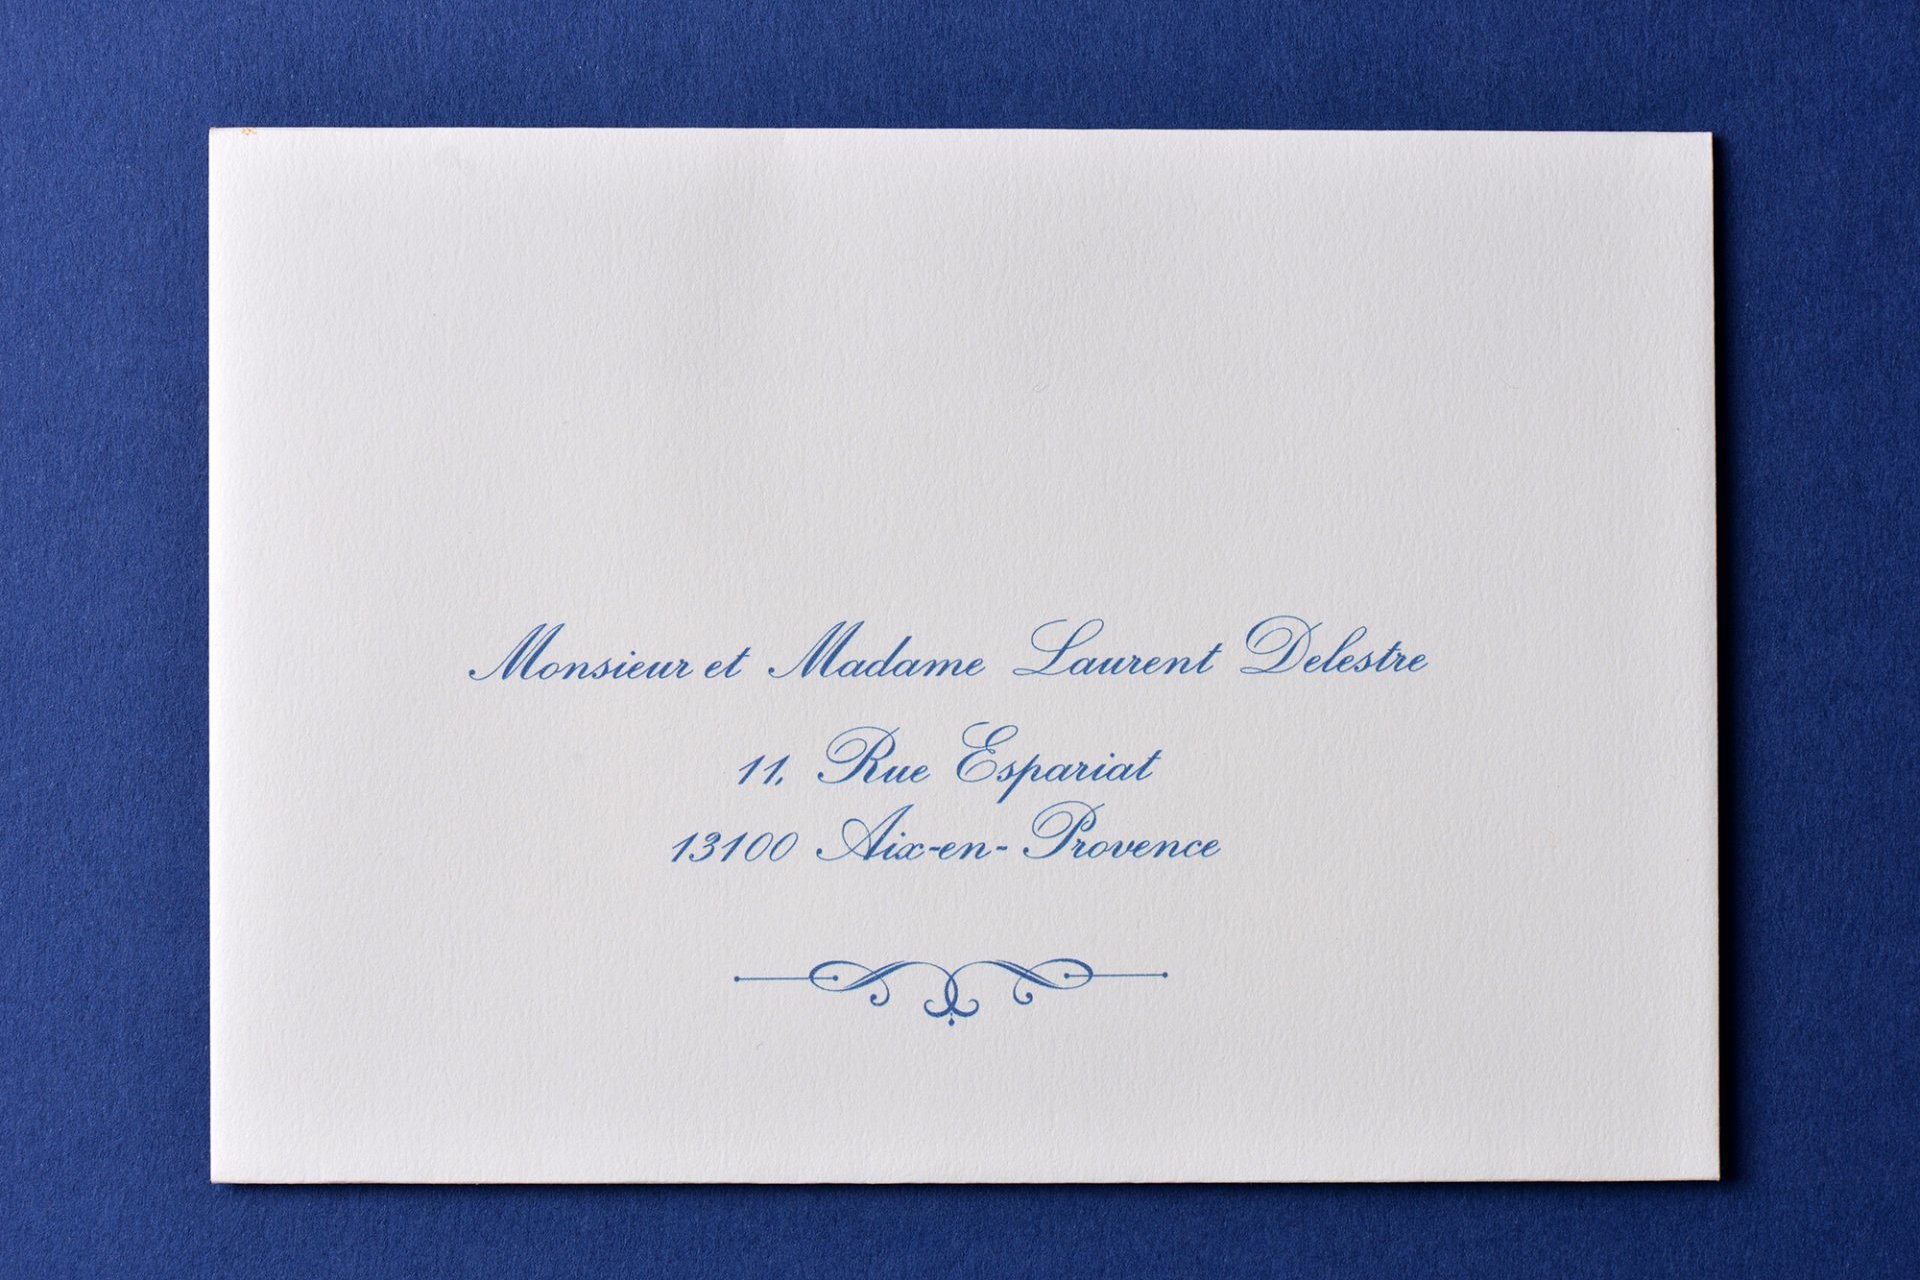 Monsieur et Madame Laurent Delestre
11, Rue Espariat
13100 Aix-en-Provence